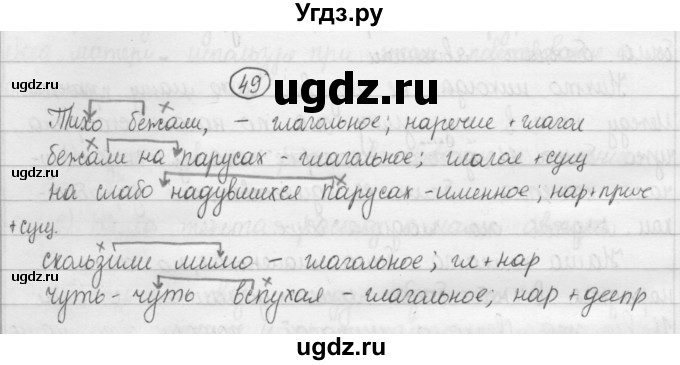 Угдз.ру
ugdz.ru ugdz.ru
49
ugdz.ru
Тихо бежали, - глагольное; наречие + глагол
бежали на парусах - глагольное; глагол + сущ
ugdz.ru ugdz.ru
на слабо надувшихся парусах - именное; нар + прич
+ сущ.
скользили мимо - глагольное; гл + нар
ugdz.ru ugdz.ru
чуть-чуть вспухая - глагольное; нар + деепр
ugdz.ru